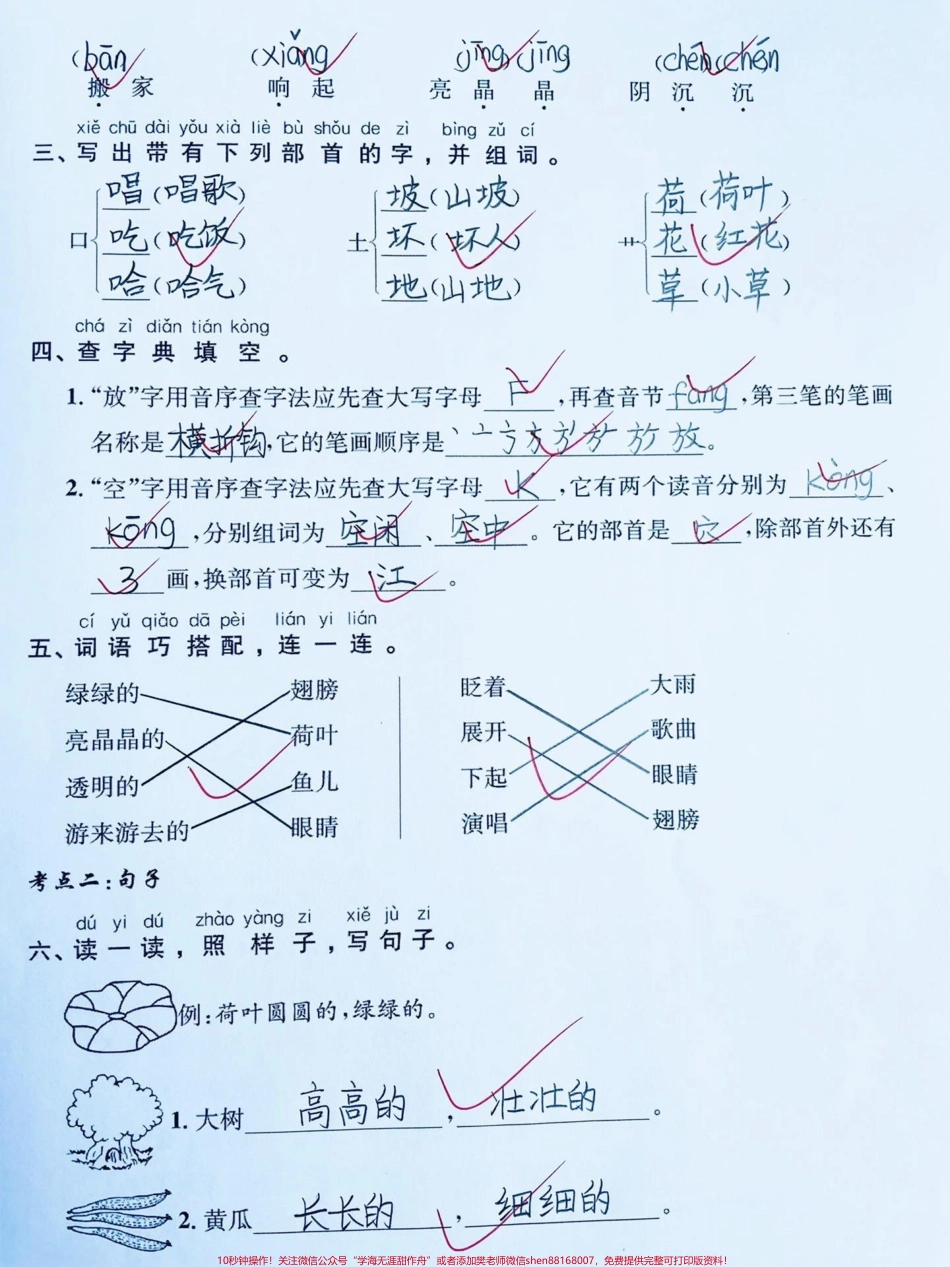 (bān (xiǎng (jīng)(jīng (chén)(chén
搬 家 响 起 亮 晶 晶 阴 沉 沉
xiě chū dài yǒu xià liè bù shǒu de zì bìng zǔ cí
三、写出带有下列部首的字,并组词。
唱(唱歌) 坡(山坡) 荷(荷叶)
口 吃(吃饭) 土 坏(坏人) 艹 花(红花)
哈(哈气) 地(山地) 草(小草)
chá zì diǎn tián kòng
四、查字典填空。
1.“放”字用音序查字法应先查大写字母 F ,再查音节 fàng ,第三笔的笔画
名称是 横折钩 ,它的笔画顺序是 放。
2.“空”字用音序查字法应先查大写字母 K ,它有两个读音分别为 kòng 、
kōng ,分别组词为 空闲 、 空中 。它的部首是 穴 ,除部首外还有
3 画,换部首可变为 江 。
cí yǔ qiǎo dā pèi lián yi lián
五、词语巧搭配,连一连。
绿绿的 翅膀 眨着 大雨
亮晶晶的 荷叶 展开 歌曲
透明的 鱼儿 下起 眼睛
游来游去的 眼睛 演唱 翅膀
考点二:句子
dú yi dú zhào yàng zi xiě jù zi
六、读一读,照样子,写句子。
例:荷叶圆圆的,绿绿的。
1.大树 高高的 , 壮壮的 。
2.黄瓜 长长的 , 细细的 。
10秒钟操作!关注微信公众号“学海无涯甜作舟”或者添加樊老师微信shen88168007,免费提供完整可打印版资料!